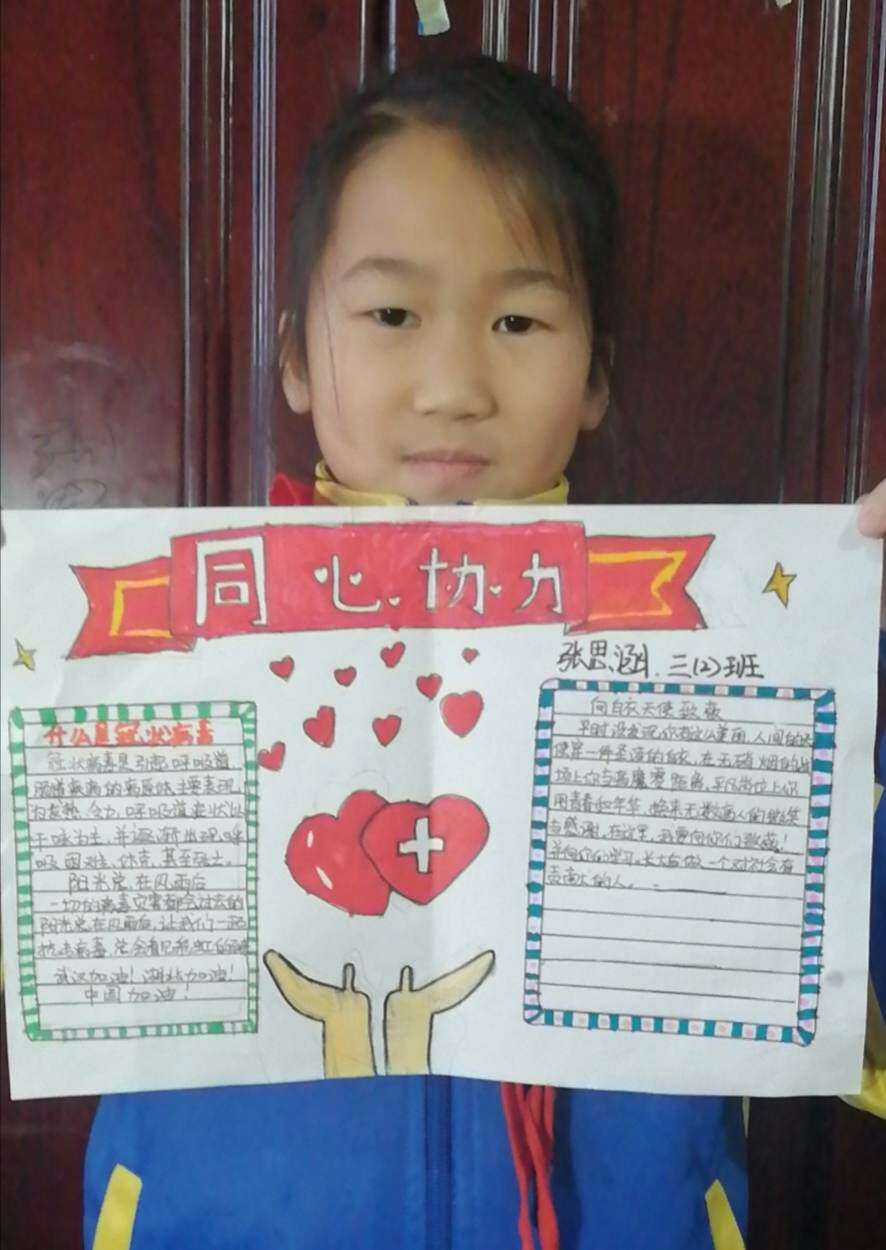 同心协力
张思涵 三(2)班
什么是冠状病毒
冠状病毒是引起呼吸道
的病原体,主要表现
为发热、乏力,呼吸道症状以
干咳为主,并逐渐出现呼
吸困难,休克,甚至死亡。
阳光总在风雨后
一切的病毒灾害都会过去的
阳光总在风雨后,让我们一起
抗击病毒,总会看见彩虹的
武汉加油!湖北加油!
中国加油!
向白衣天使致敬
平时没发现你有这么美丽,人间的天
使穿一件圣洁的白衣,在无硝烟的战
场上你与病魔零距离,平凡岗位上你
用青春和年华,换来无数病人的
与感谢,在这里,我要向你们致敬!
并向你们学习,长大后做一个对社会有
贡献大的人。